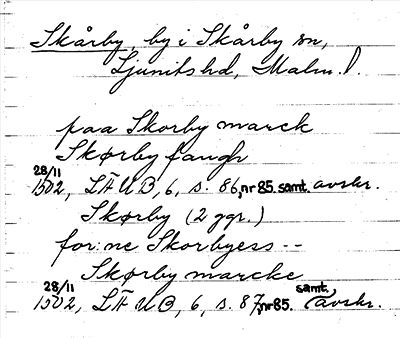 Skårby, by i Skårby sn,
Ljunits hd, Malm. l.
paa Skorby marck
Skørby fangh
28/11
1502, LÄUB, 6, s. 86, nr 85. samt. avskr.
Skørby (2 ggr.)
for:ne Skorbyess --
Skørby marcke
28/11 samt.
1502, LÄUB, 6, s. 87, nr 85. avskr.